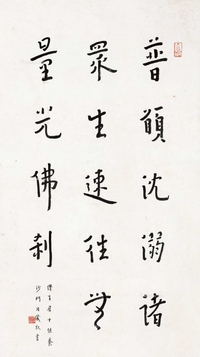 普願沈溺諸
眾生速往無
量光佛剎